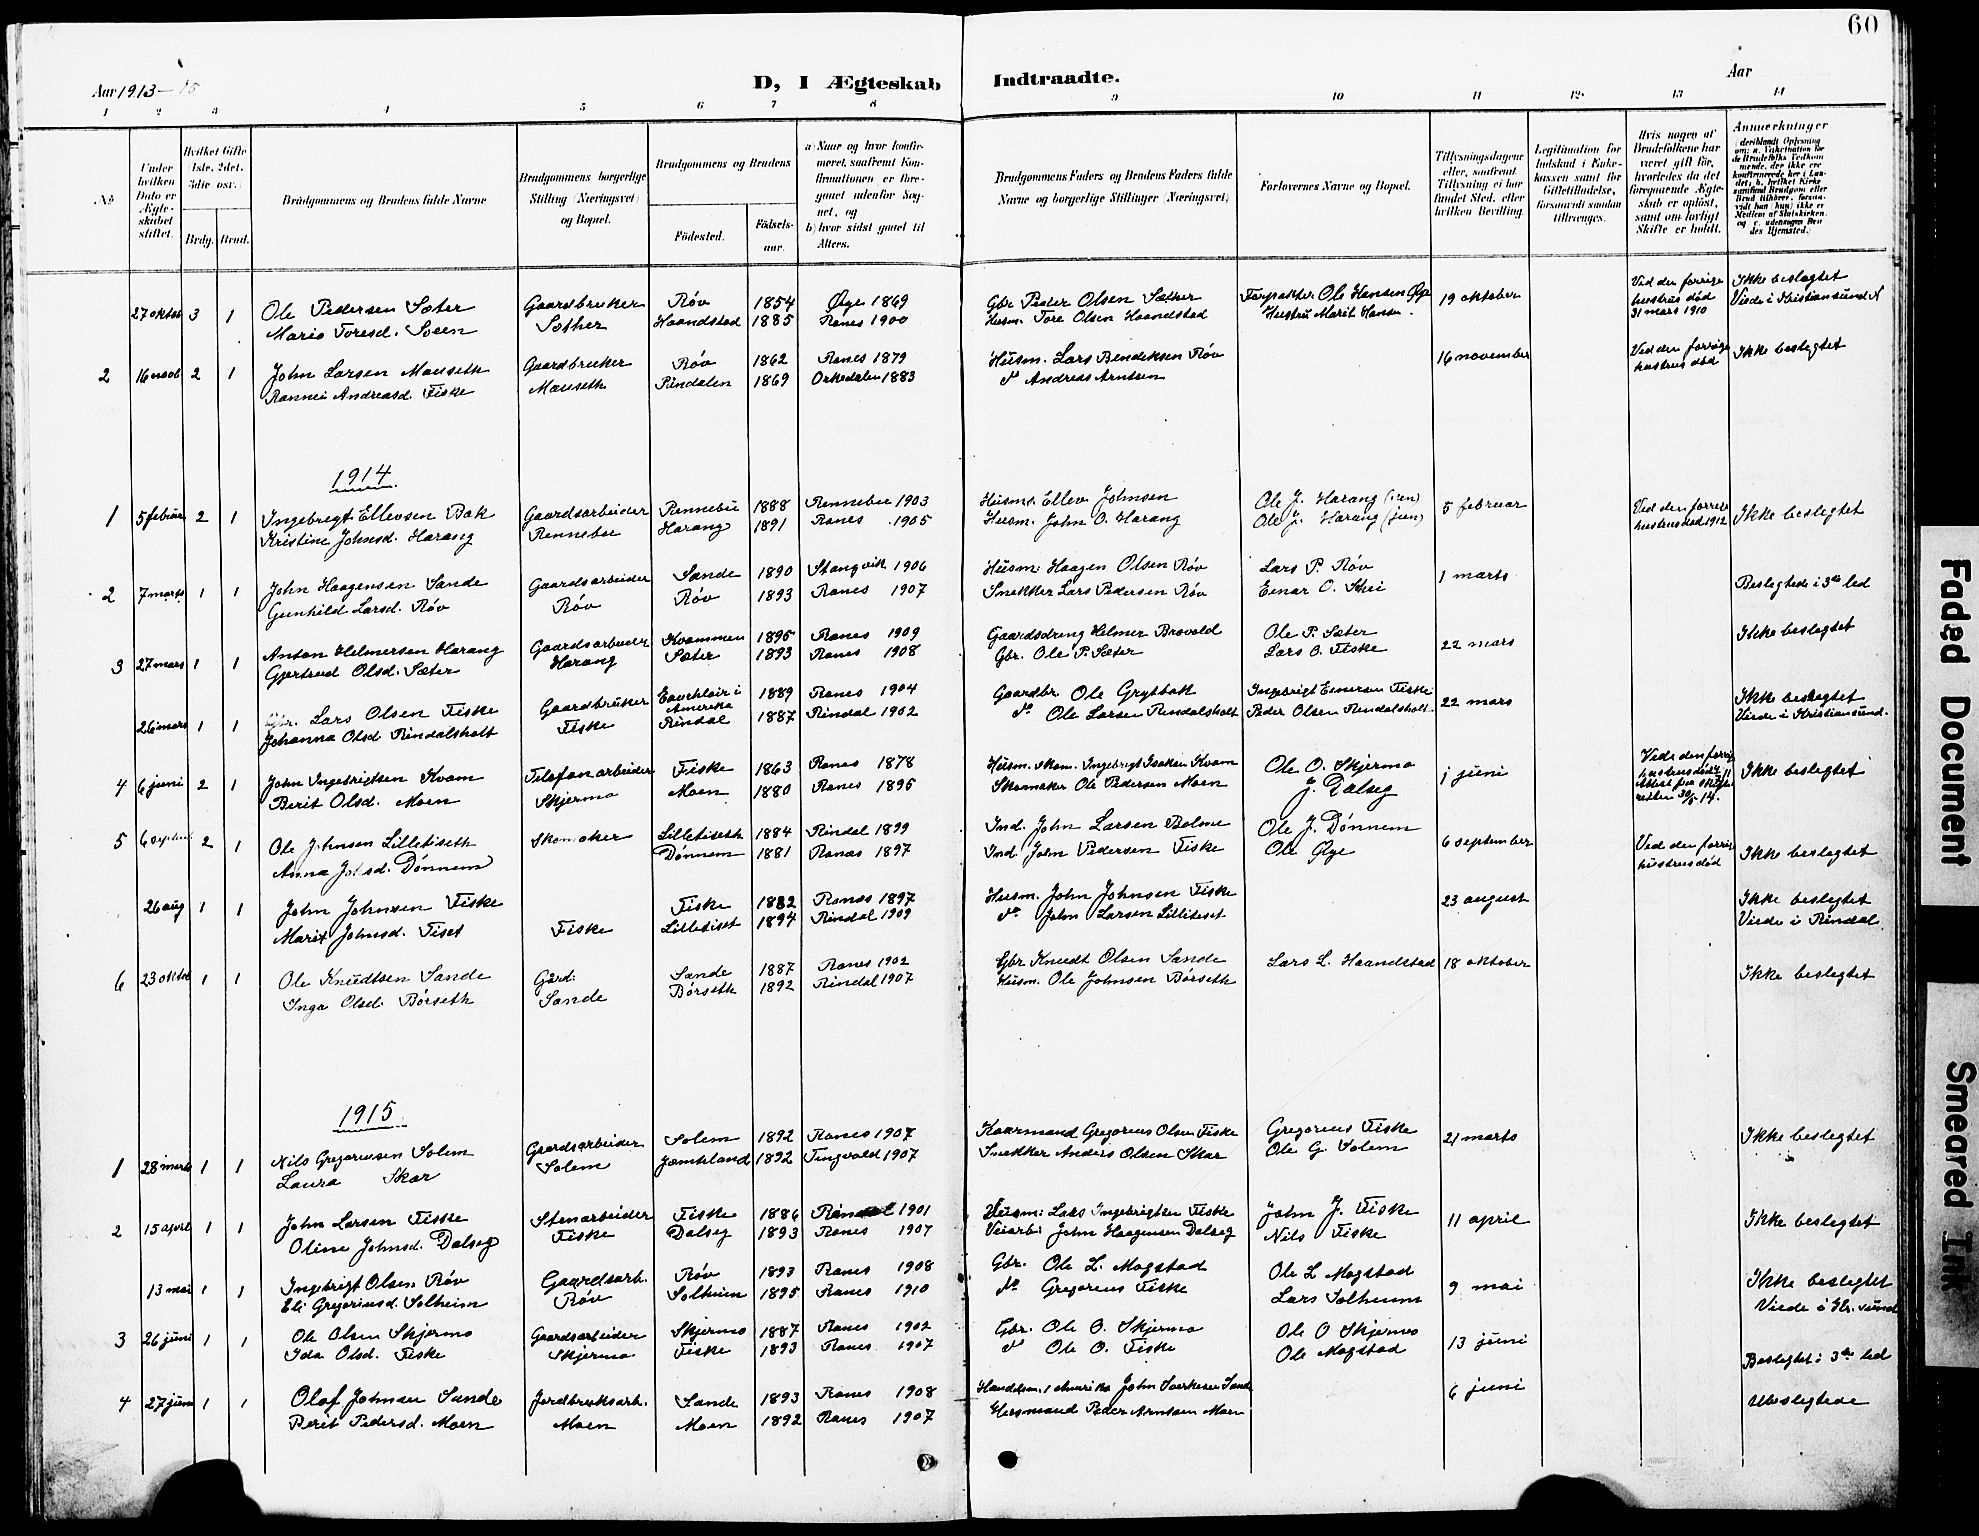 60
Aar 1913-15
D, I Ægteskab Indtraadte.
Aar
1 2 3 4 5 6 7 8 9 10 11 12 13 14
No
Under hvilken Dato er Ægteskabet stiftet.
Hvilket Gifte (1ste, 2det, 3die osv.)
Brdg. Brud.
Brudgommens og Brudens fulde Navne
Brudgommens borgerlige Stilling (Næringsvei) og Bopæl.
Brudgommens og Brudens
Födested.
Födselsaar.
a) Naar og hvor konfirmeret, saafremt Konfirmationen er foregaaet udenfor Sognet, og
b) hvor sidst gaaet til Alters.
Brudgommens Faders og Brudens Faders fulde Navne og borgerlige Stillinger (Næringsvei)
Forlovernes Navne og Bopæl.
Tillysningsdagene eller, saafremt Tillysning ei har fundet Sted, efter hvilken Bevilling.
Legitimation for Indskud i Enkekassen samt for Giftetilladelse, forsaavidt saadan tiltrænges.
Hvis nogen af Brudefolkene har været gift för, hvorledes da det foregaaende Ægteskab er oplöst, samt om lovligt Skifte er holdt.
Anmærkninger
27 oktob 3 1 Ole Pedersen Sæter Gaardbruker Röv 1854 Øye 1869 Gbr. Peder Olsen Sæther Forpakter Ole Hansen Øye 19 oktober Ved den forrige Ikke beslegtet
Marie Toresd. Soen Sæther Haandstad 1885 Ranes 1900 Husm. Tore Olsen Haandstad Hustru Marit Hansen. hustrus död 31 mars 1910 Viede i Kristiansund N
2 16 novb 2 1 John Larsen Mauseth Gaardbruker Röv 1862 Ranes 1879 Husm. Lars Bendiksen Röv 16 november Ved den forrige Ikke beslegtet
Rannei Andreasd. Fiske Mauseth Rindalen 1869 Orkedalen 1883 do Andreas Arntsen hustrus död
1914
1 5 februar 2 1 Ingebrigt Ellevsen Bak Gaardsarbeider Rennebu 1888 Rennebu 1903 Husm. Ellev Johnsen Ole J. Harang (sen) 5 februar Ved den forrige Ikke beslegtet
Kristine Johnsd. Harang Rennebu Harang 1891 Ranes 1905 Husm. John O. Harang Ole J. Harang (jun) hustrus död 1912
2 7 marts 1 1 John Haagensen Sande Gaardsarbeider Sande 1890 Stangvik 1906 Husm. Haagen Olsen Röv Lars P. Röv 1 marts Beslegtede i 3die led
Gunhild Larsd. Röv Röv Röv 1893 Ranes 1907 Snekker Lars Pedersen Röv Einar O. Skei
3 27 mars 1 1 Anton Helmersen Harang Gaardsarbeider Kvammen 1895 Ranes 1909 Gaardsdreng Helmer Brovold Ole P. Sæter 22 mars Ikke beslegtet
Gjertrud Olsd. Sæter Harang Sæter 1893 Ranes 1908 Gbr. Ole P. Sæter Lars O. Fiske
26 mars 1 1 Gbr. Lars Olsen Fiske Gaardbruker Eauchlair i Amerika 1889 Ranes 1904 Gaardbr. Ole Grytbak Ingebrigt Einersen Fiske 22 mars Ikke beslegtet
Johanna Olsd Rindalsholt Fiske Rindal 1887 Rindal 1902 do Ole Larsen Rindalsholt Peder Olsen Rindalsholt Viede i Kristiansund.
4 6 juni 2 1 John Ingebrigtsen Kvam Telefonarbeider Fiske 1863 Ranes 1878 Husm. skom. Ingebrigt Isaksen Kvam Ole O. Skjermo 1 juni Ved den forrige Ikke beslegtet
Berit Olsd. Moen Skjermo Moen 1880 Ranes 1895 Skomaker Ole Pedersen Moen J. Dalseg hustrus död Attest fra skifteretten 30/5-14.
5 6 septem 2 1 Ole Johnsen Lilletiseth Skomaker Lilletiseth 1884 Rindal 1899 Ind. John Larsen Bolme Ole J. Dönnem 6 september Ved den forrige Ikke beslegtet
Anna Johnsd. Dönnem Dönnem 1881 Ranæs 1897 Ind. John Pedersen Fiske Ole Øye hustrus död
26 aug 1 1 John Johnsen Fiske Fiske 1882 Ranæs 1897 Husm. John Johnsen Fiske 23 august Ikke beslegtet
Marit Johnsd. Tiset Fiske Lilletiset 1894 Rindal 1909 do John Larsen Lilletiset Viede i Rindal
6 23 oktob 1 1 Ole Knudtsen Sande Gård: Sande 1887 Ranes 1902 Gbr Knudt Olsen Sande Lars L. Haandstad 18 oktober Ikke beslegtet
Inga Olsd. Börseth Sande Börseth 1892 Rindal 1907 Husm. Ole Johnsen Börseth
1915
1 28 marts 1 1 Nils Gregoriussen Solem Gaardsarbeider Solem 1892 Ranes 1907 Kaarmand Gregorius Olsen Fiske Gregorius Fiske 21 marts Ikke beslegtet
Laura Skar Solem Jæmtland 1892 Tingvold 1907 Snekker Anders Olsen Skar Ole G Solem
2 15 april 1 1 John Larsen Fiske Stenarbeider Fiske 1886 Rindal 1901 Husm: Lars Ingebrigtsen Fiske John J. Fiske 11 april Ikke beslegtet
Oline Johnsd. Dalseg Fiske Dalseg 1893 Ranes 1907 Veiarb: John Haagensen Dalseg Nils Fiske
13 mai 1 1 Ingebrigt Olsen Röv Gaardsarb. Röv 1893 Ranes 1908 Gbr. Ole L. Mogstad Ole L Mogstad 9 mai Ikke beslegtet
Eli Gregoriusd. Solheim Röv Solheim 1895 Ranes 1910 do Gregorius Fiske Lars Solheim Viede i Kr. sund
3 26 juni 1 1 Ole Olsen Skjermo Gaardsarbeider Skjermo 1887 Ranes 1902 Gbr. Ole O. Skjermo Ole O Skjermo 13 juni Beslegtet i 3die led
Ida Olsd. Fiske Skjermo Fiske 1893 Ranes 1907 do Ole O. Fiske Ole Mogstad
4 27 juni 1 1 Olaf Johnsen Sande Jordbruksarb. Sande 1893 Ranes 1908 Handelsm. i Amerika John Sande 6 juni Ubeslegtede
Berit Pedersd. Moen Moen Moen 1892 Ranes 1907 Husmand Peder Arntsen Moen
Faded Document
Smeared Ink